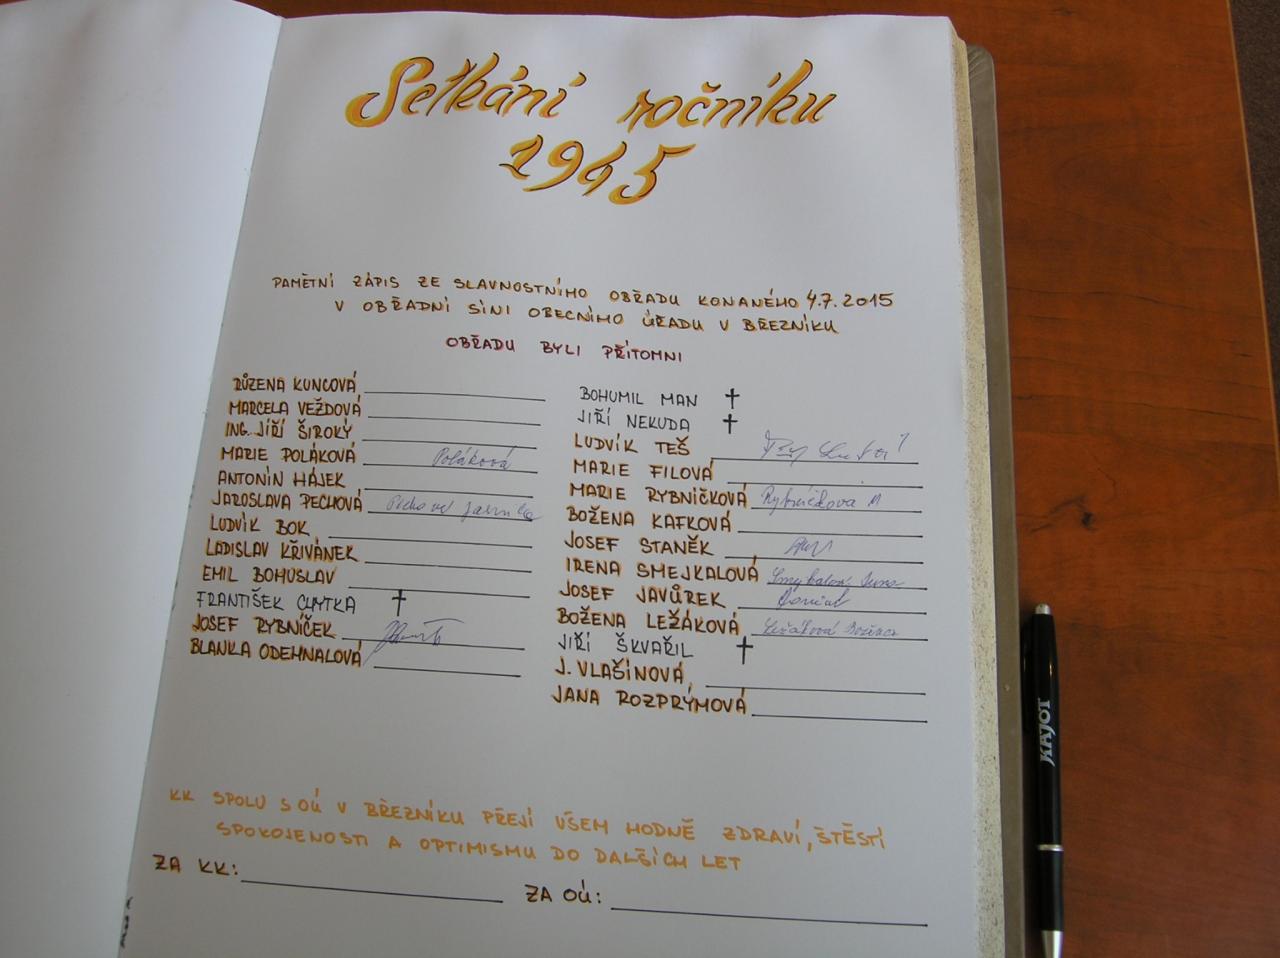 Setkání ročníku
1945
PAMĚTNÍ ZÁPIS ZE SLAVNOSTNÍHO OBŘADU KONANÉHO 4.7.2015
V OBŘADNÍ SÍNI OBECNÍHO ÚŘADU V BŘEZNÍKU
OBŘADU BYLI PŘÍTOMNI
RŮŽENA KUNCOVÁ
MARCELA VEŽDOVÁ
ING. JIŘÍ ŠIROKÝ
MARIE POLÁKOVÁ Poláková
ANTONÍN HÁJEK
JAROSLAVA PECHOVÁ
LUDVÍK BOK
LADISLAV KŘIVÁNEK
EMIL BOHUSLAV
FRANTIŠEK CHYTKA †
JOSEF RYBNÍČEK
BLANKA ODEHNALOVÁ
BOHUMIL MAN †
JIŘÍ NEKUDA †
LUDVÍK TEŠ
MARIE FILOVÁ
MARIE RYBNÍČKOVÁ Rybníčková M
BOŽENA KAFKOVÁ
JOSEF STANĚK
IRENA SMEJKALOVÁ
JOSEF JAVŮREK
BOŽENA LEŽÁKOVÁ Ležáková Božena
JIŘÍ ŠKVAŘIL †
J. VLAŠÍNOVÁ
JANA ROZPRÝMOVÁ
KK SPOLU S OÚ V BŘEZNÍKU PŘEJÍ VŠEM HODNĚ ZDRAVÍ, ŠTĚSTÍ
SPOKOJENOSTI A OPTIMISMU DO DALŠÍCH LET
ZA KK: ZA OÚ:
KAJOT